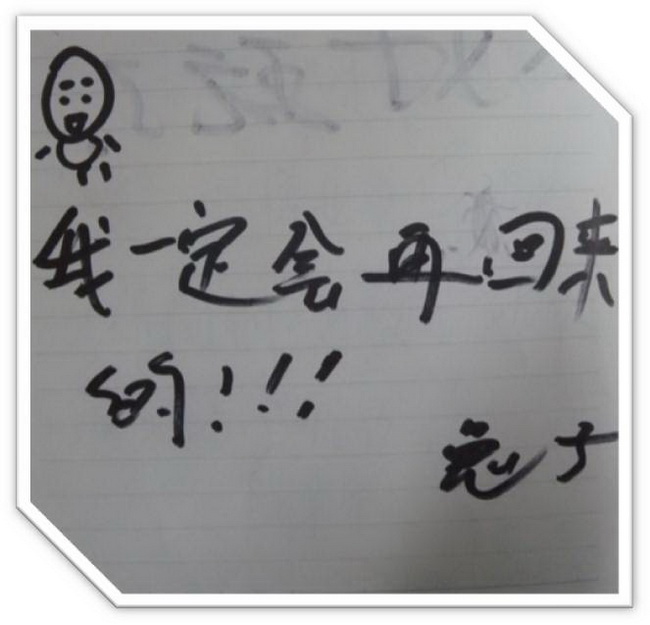 我一定会再回来
的!!!